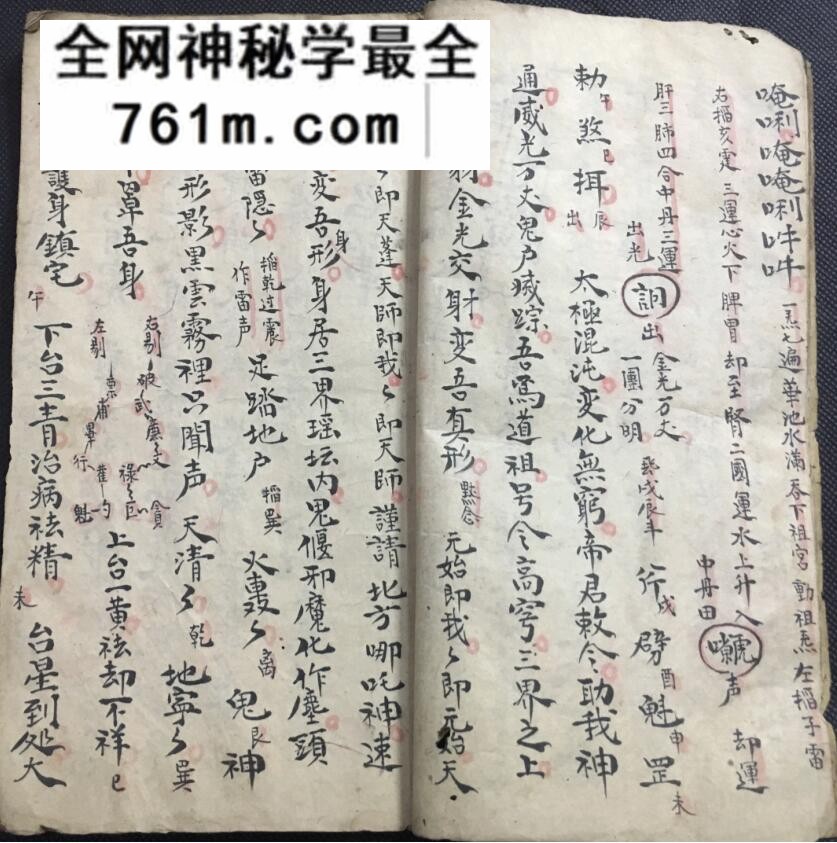 全网神秘学最全
761m.com
唵唎唵唵唎吽吽 一炁七遍華池水滿吞下祖宫動祖炁左搯子雷
右搯亥霆三運心火下脾胃却至腎二國運水上升入中丹田 声 却運
肝三肺四合中丹三運出光 出金光万丈一團分明 癸戌辰年 戌 劈酉魁申罡未
勅午煞巳揖辰出 太極混沌变化無窮帝君敕令助我神
通威光万丈鬼户滅踪吾為道祖号令高穹三界之上
金光交射变吾真形 默念 元始即我々即元始天
々即天蓬天師即我々即天師謹請北方哪吒神速
变吾形身身居三界瑶坛内鬼偃邪魔化作塵頭
雷隱々 搯乾过震作雷声 足踏地户 搯巽 火轟々离 鬼艮神
形影黑雲霧裡只聞声 天清々乾 地寧々巽
罩吾身 右剔 破武廉文禄巨貪 左剔 魁 上台一黄祛却不祥巳
護身鎮宅午 下台三青治病祛精未 台星到処大